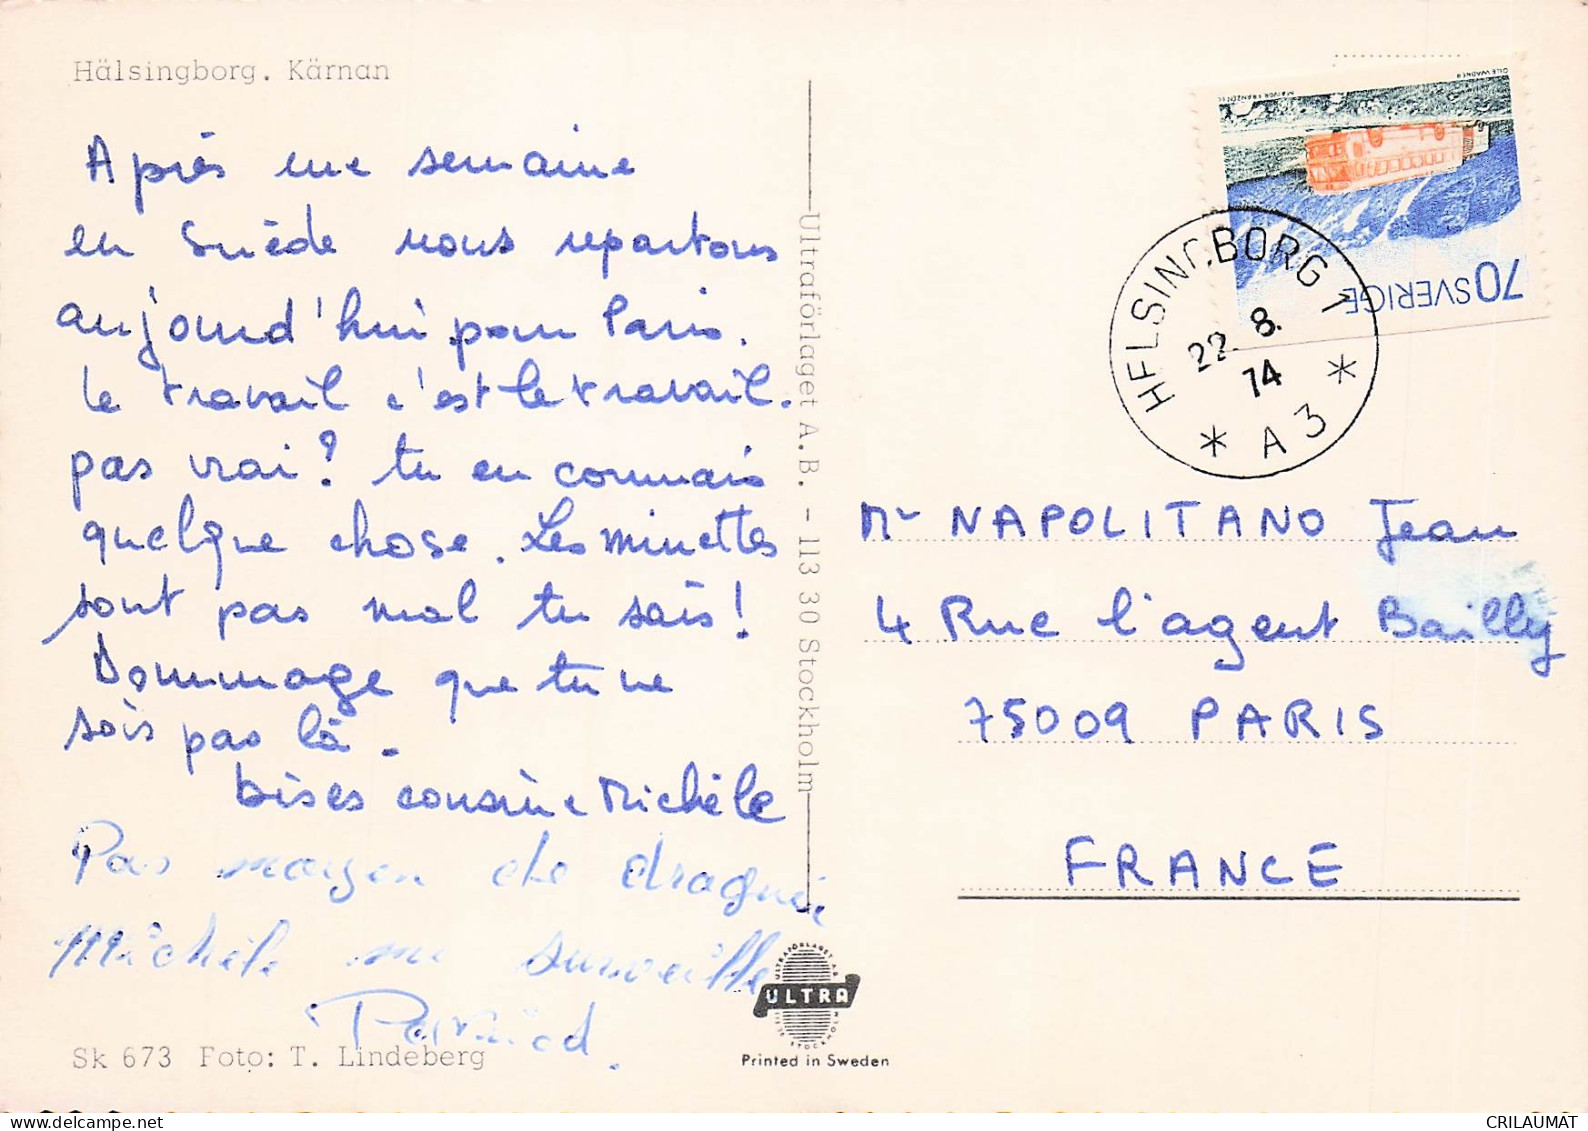 Hälsingborg. Kärnan
Après une semaine
en Suède nous repartons
aujourd'hui pour Paris.
le travail c'est le travail.
pas vrai? tu en connais
quelque chose. Les minettes
sont pas mal tu sais!
Dommage que tu ne
sois pas là.
bises cousine Michèle
Pas moyen de draguer
Michèle me surveille
Sk 673 Foto: T. Lindeberg
Ultraförlaget A.B. - 113 30 Stockholm
ULTRAFÖRLAGET AB
ULTRA
STOCKHOLM
Printed in Sweden
MAJVOR FRANZÉN SC
OLLE WAGNER
70 SVERIGE
HELSINGBORG 1
22. 8.
74
* A3 *
Mr NAPOLITANO Jean
4 Rue l'agent Bailly
75009 PARIS
FRANCE
CRILAUMAT